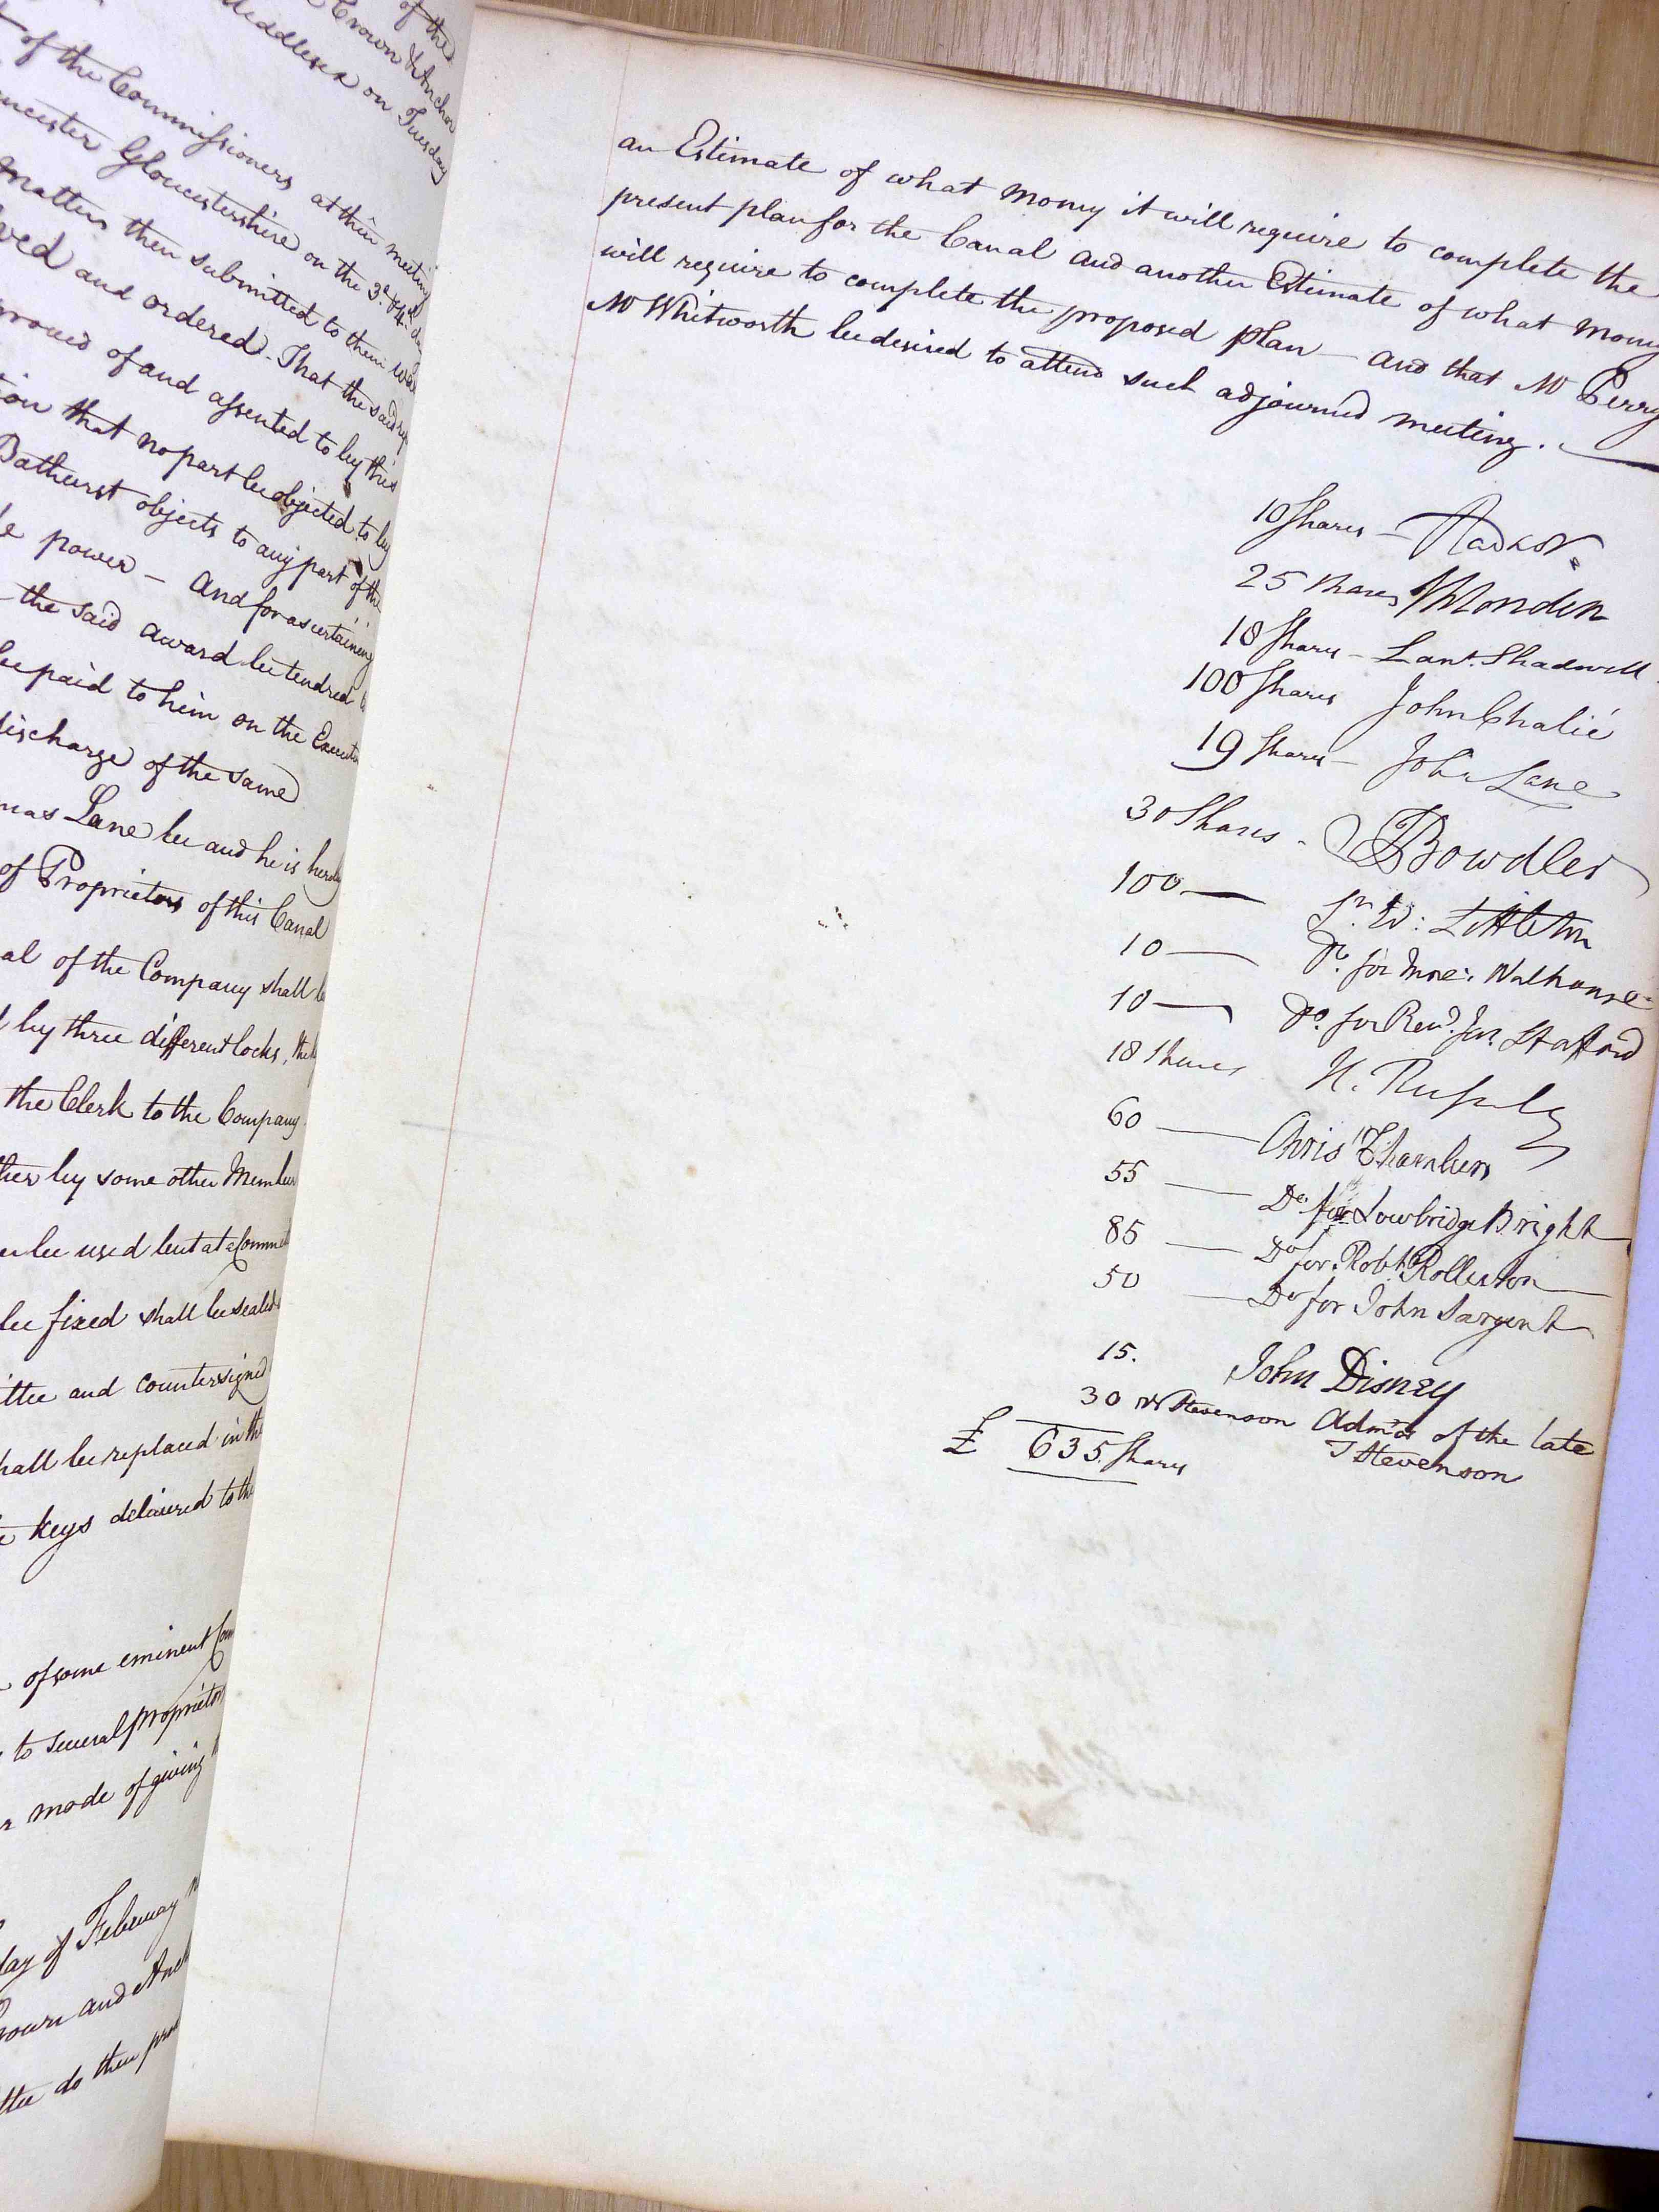 of the
Crown & Anchor
Middlesex on Tuesday
of the Commissioners at their meeting
Gloucestershire on the 3d. & 4th. day
matters then submitted to them was
and ordered - That the said
of and assented to by this
that no part be objected to by
Bathurst objects to any part of the
power - And for ascertaining
the said award be tendred
be paid to him on the
discharge of the same
Lane be and he is
of Proprietors of this Canal
of the Company shall
by three different locks,
the Clerk to the Company
by some other Member
be used but at a
be fixed shall be sealed
and countersigned
shall be replaced in the
keys delivered to the
of some eminent
to several proprietors
mode of giving
day of February
and
do then
an Estimate of what Money it will require to complete the
present plan for the Canal and another Estimate of what Money
will require to complete the proposed plan - and that Mr Perry
Mr Whitworth be desired to attend such adjourned meeting.
10 Shares - Radnor.
25 Shares
18 Shares - Lant. Shadwell
100 Shares John Chalié
19 Shares - John Lane
30 Shares - Bowdler
100 — Sr. Ed: Littleton
10 — Do. for More: Walhouse
10 — Do. for Revd. Jn. Stafford
18 Shares
60 — Chris Chambers
55 — Do. for Lowbridge Bright
85 — Do for Robt Rolleston
50 — Do for John Sargent
15. John Disney
30 W Stevenson Admr of the late
J Stevenson
£ 635 Shares